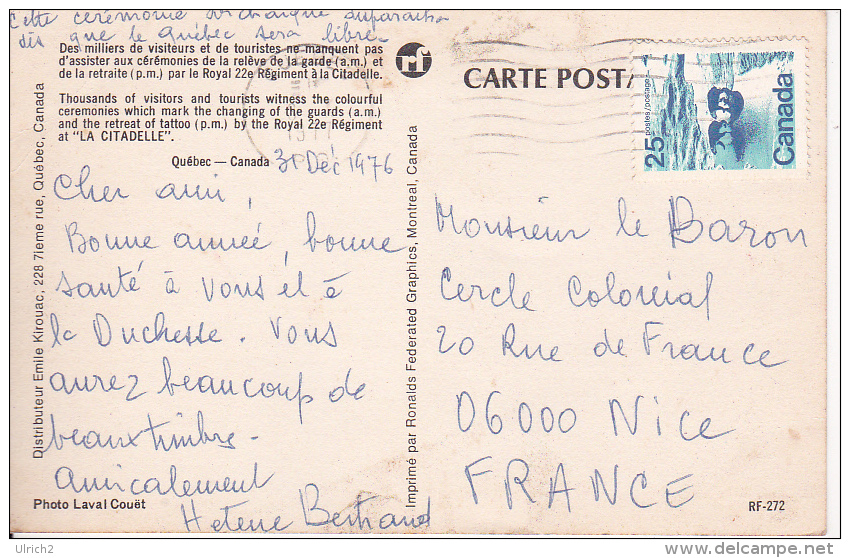 Cette cérémonie archaïque disparaitra
dès que le Québec sera libre -
Des milliers de visiteurs et de touristes ne manquent pas
d'assister aux cérémonies de la relève de la garde (a.m.) et
de la retraite (p.m.) par le Royal 22e Régiment à la Citadelle.
Thousands of visitors and tourists witness the colourful
ceremonies which mark the changing of the guards (a.m.)
and the retreat of tattoo (p.m.) by the Royal 22e Régiment
at "LA CITADELLE".
Québec — Canada
31 Déc 1976
Cher ami,
Bonne année, bonne
santé à vous et à
la Duchesse. Vous
aurez beaucoup de
beaux timbres -
amicalement
Helene Bertrand
Photo Laval Couët
Distributeur Emile Kirouac, 228 7ieme rue, Québec, Canada
Imprimé par Ronalds Federated Graphics, Montreal, Canada
rf
CARTE POSTA
25 postes/postage
Canada
Monsieur le Baron
Cercle Colonial
20 Rue de France
06000 Nice
FRANCE
RF-272
Ulrich2
delcampe.net